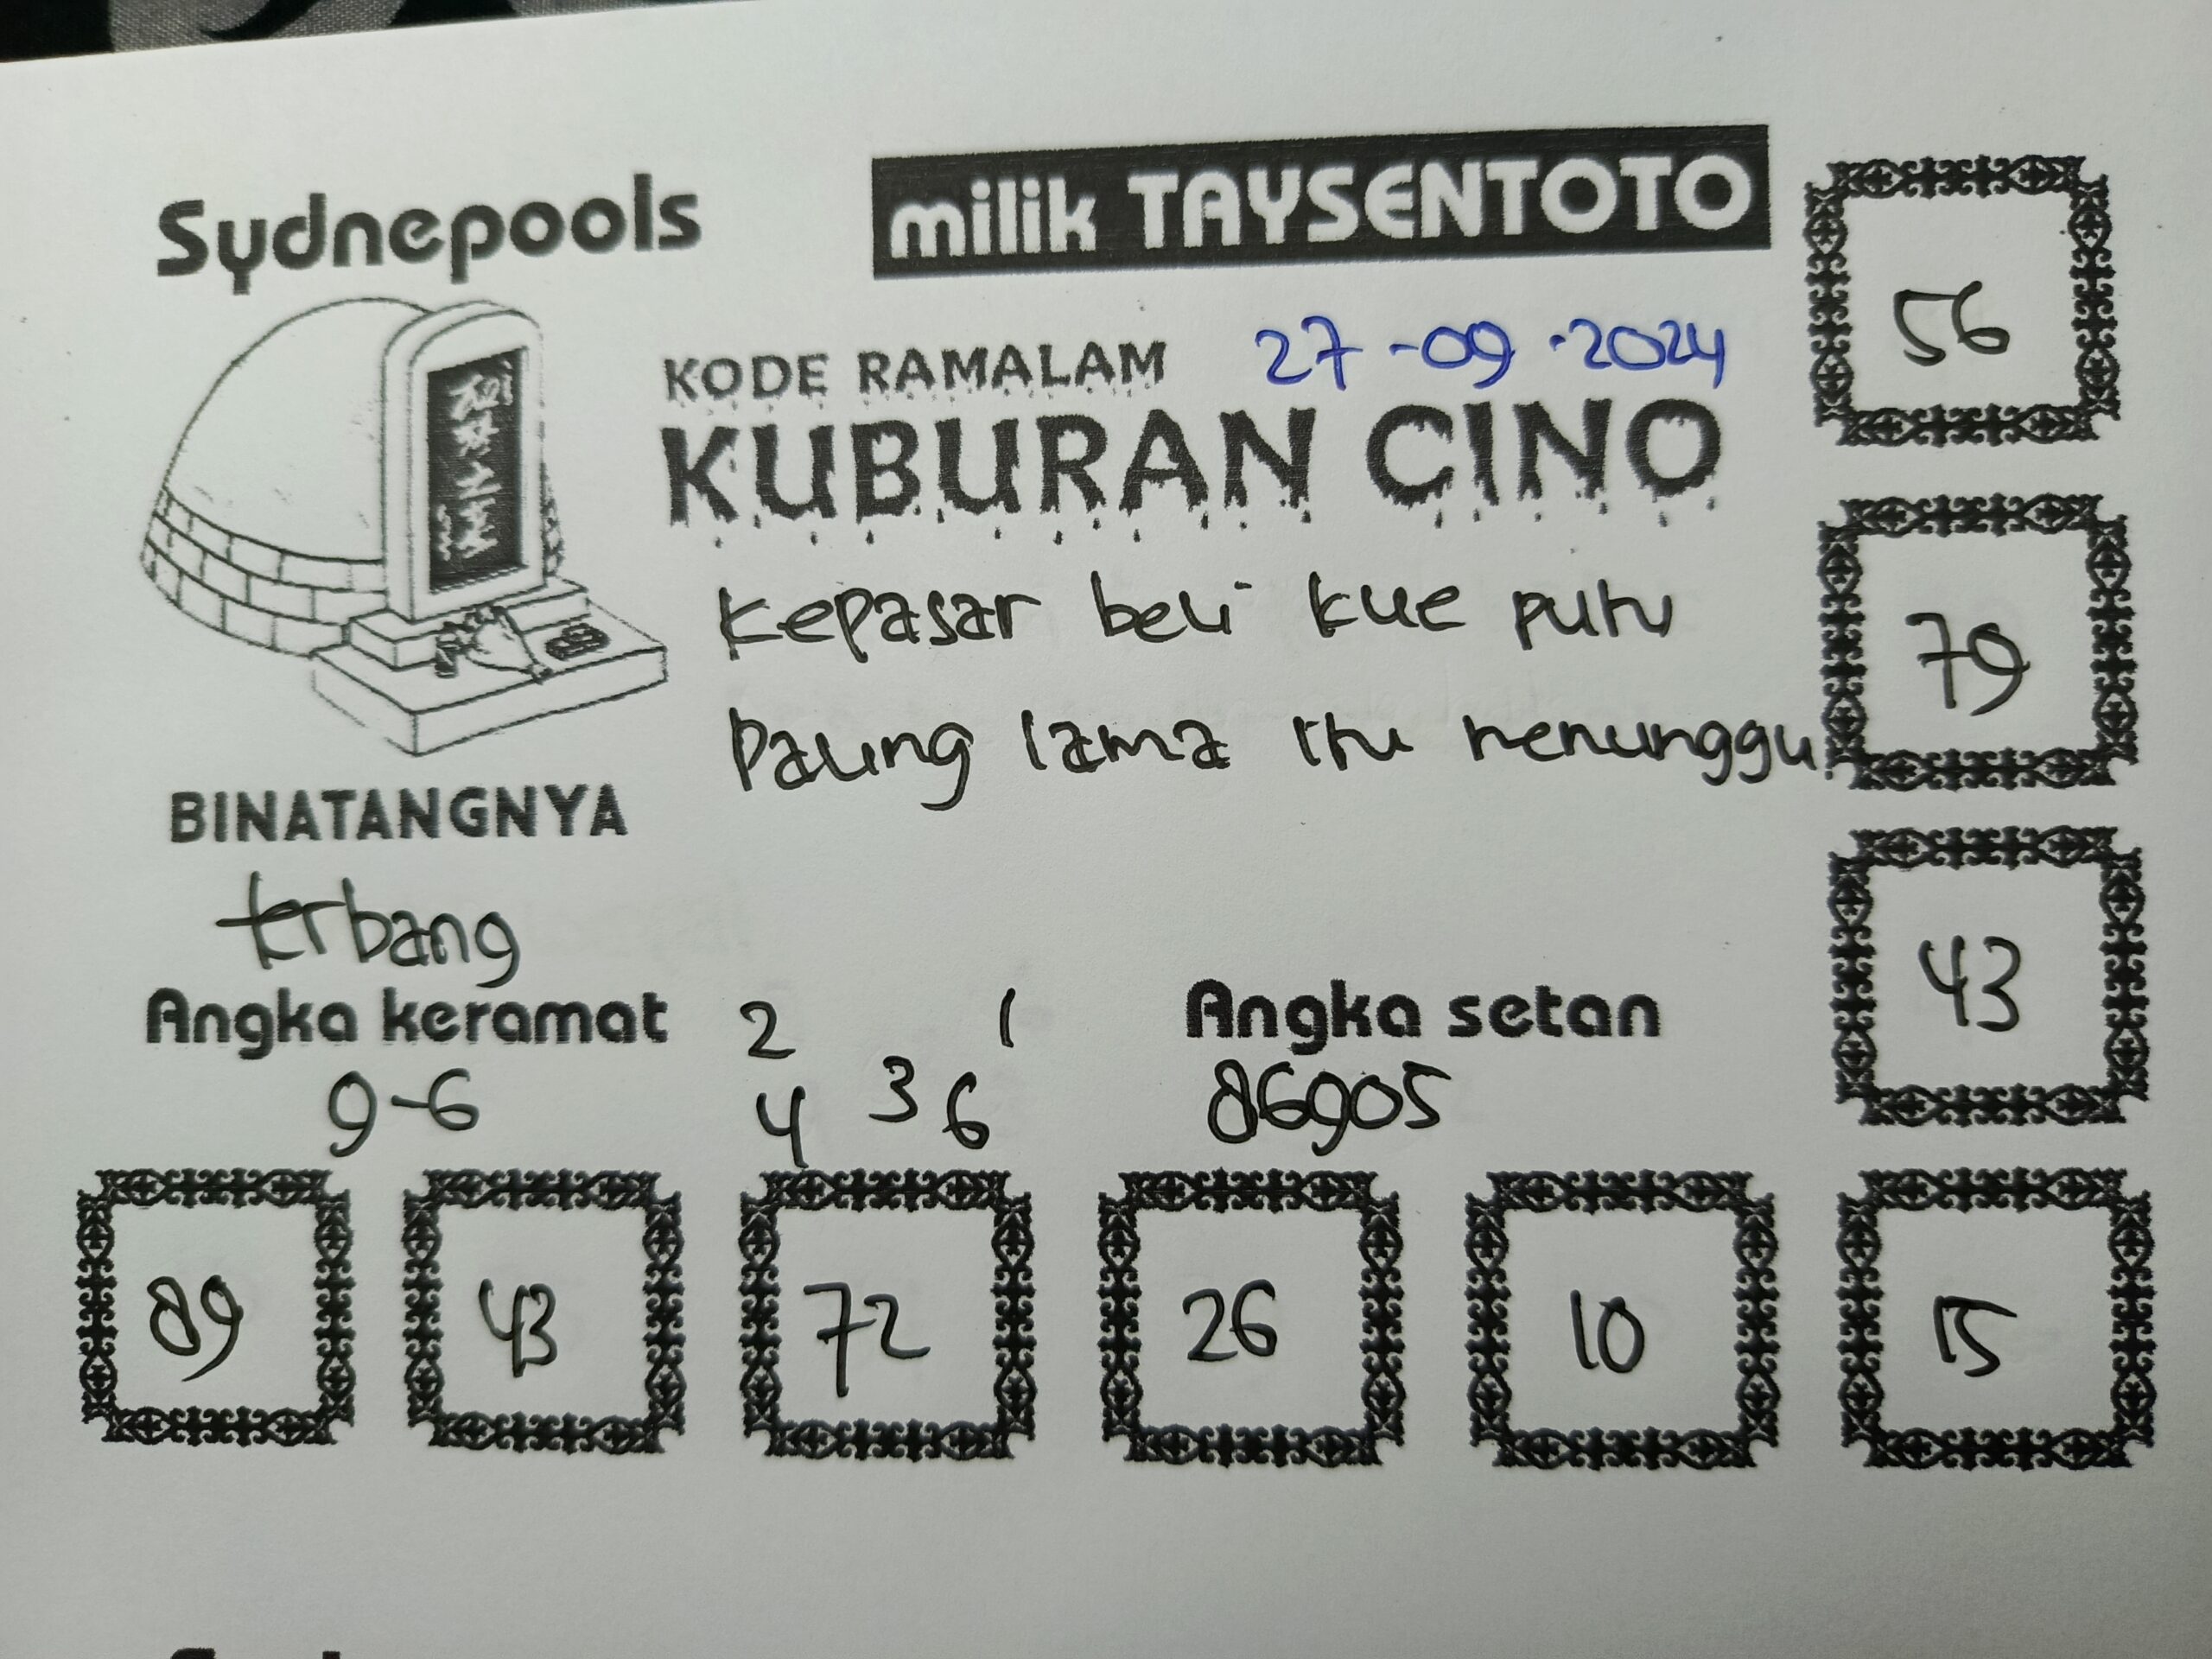 Sydnepools
milik TAYSENTOTO
KODE RAMALAM 27-09-2024
KUBURAN CINO
kepasar beli kue putu
Paling lama itu nenunggu
BINATANGNYA
terbang
Angka keramat
9-6
2 1
4 3 6
Angka setan
86905
56
79
43
89 43 72 26 10 15